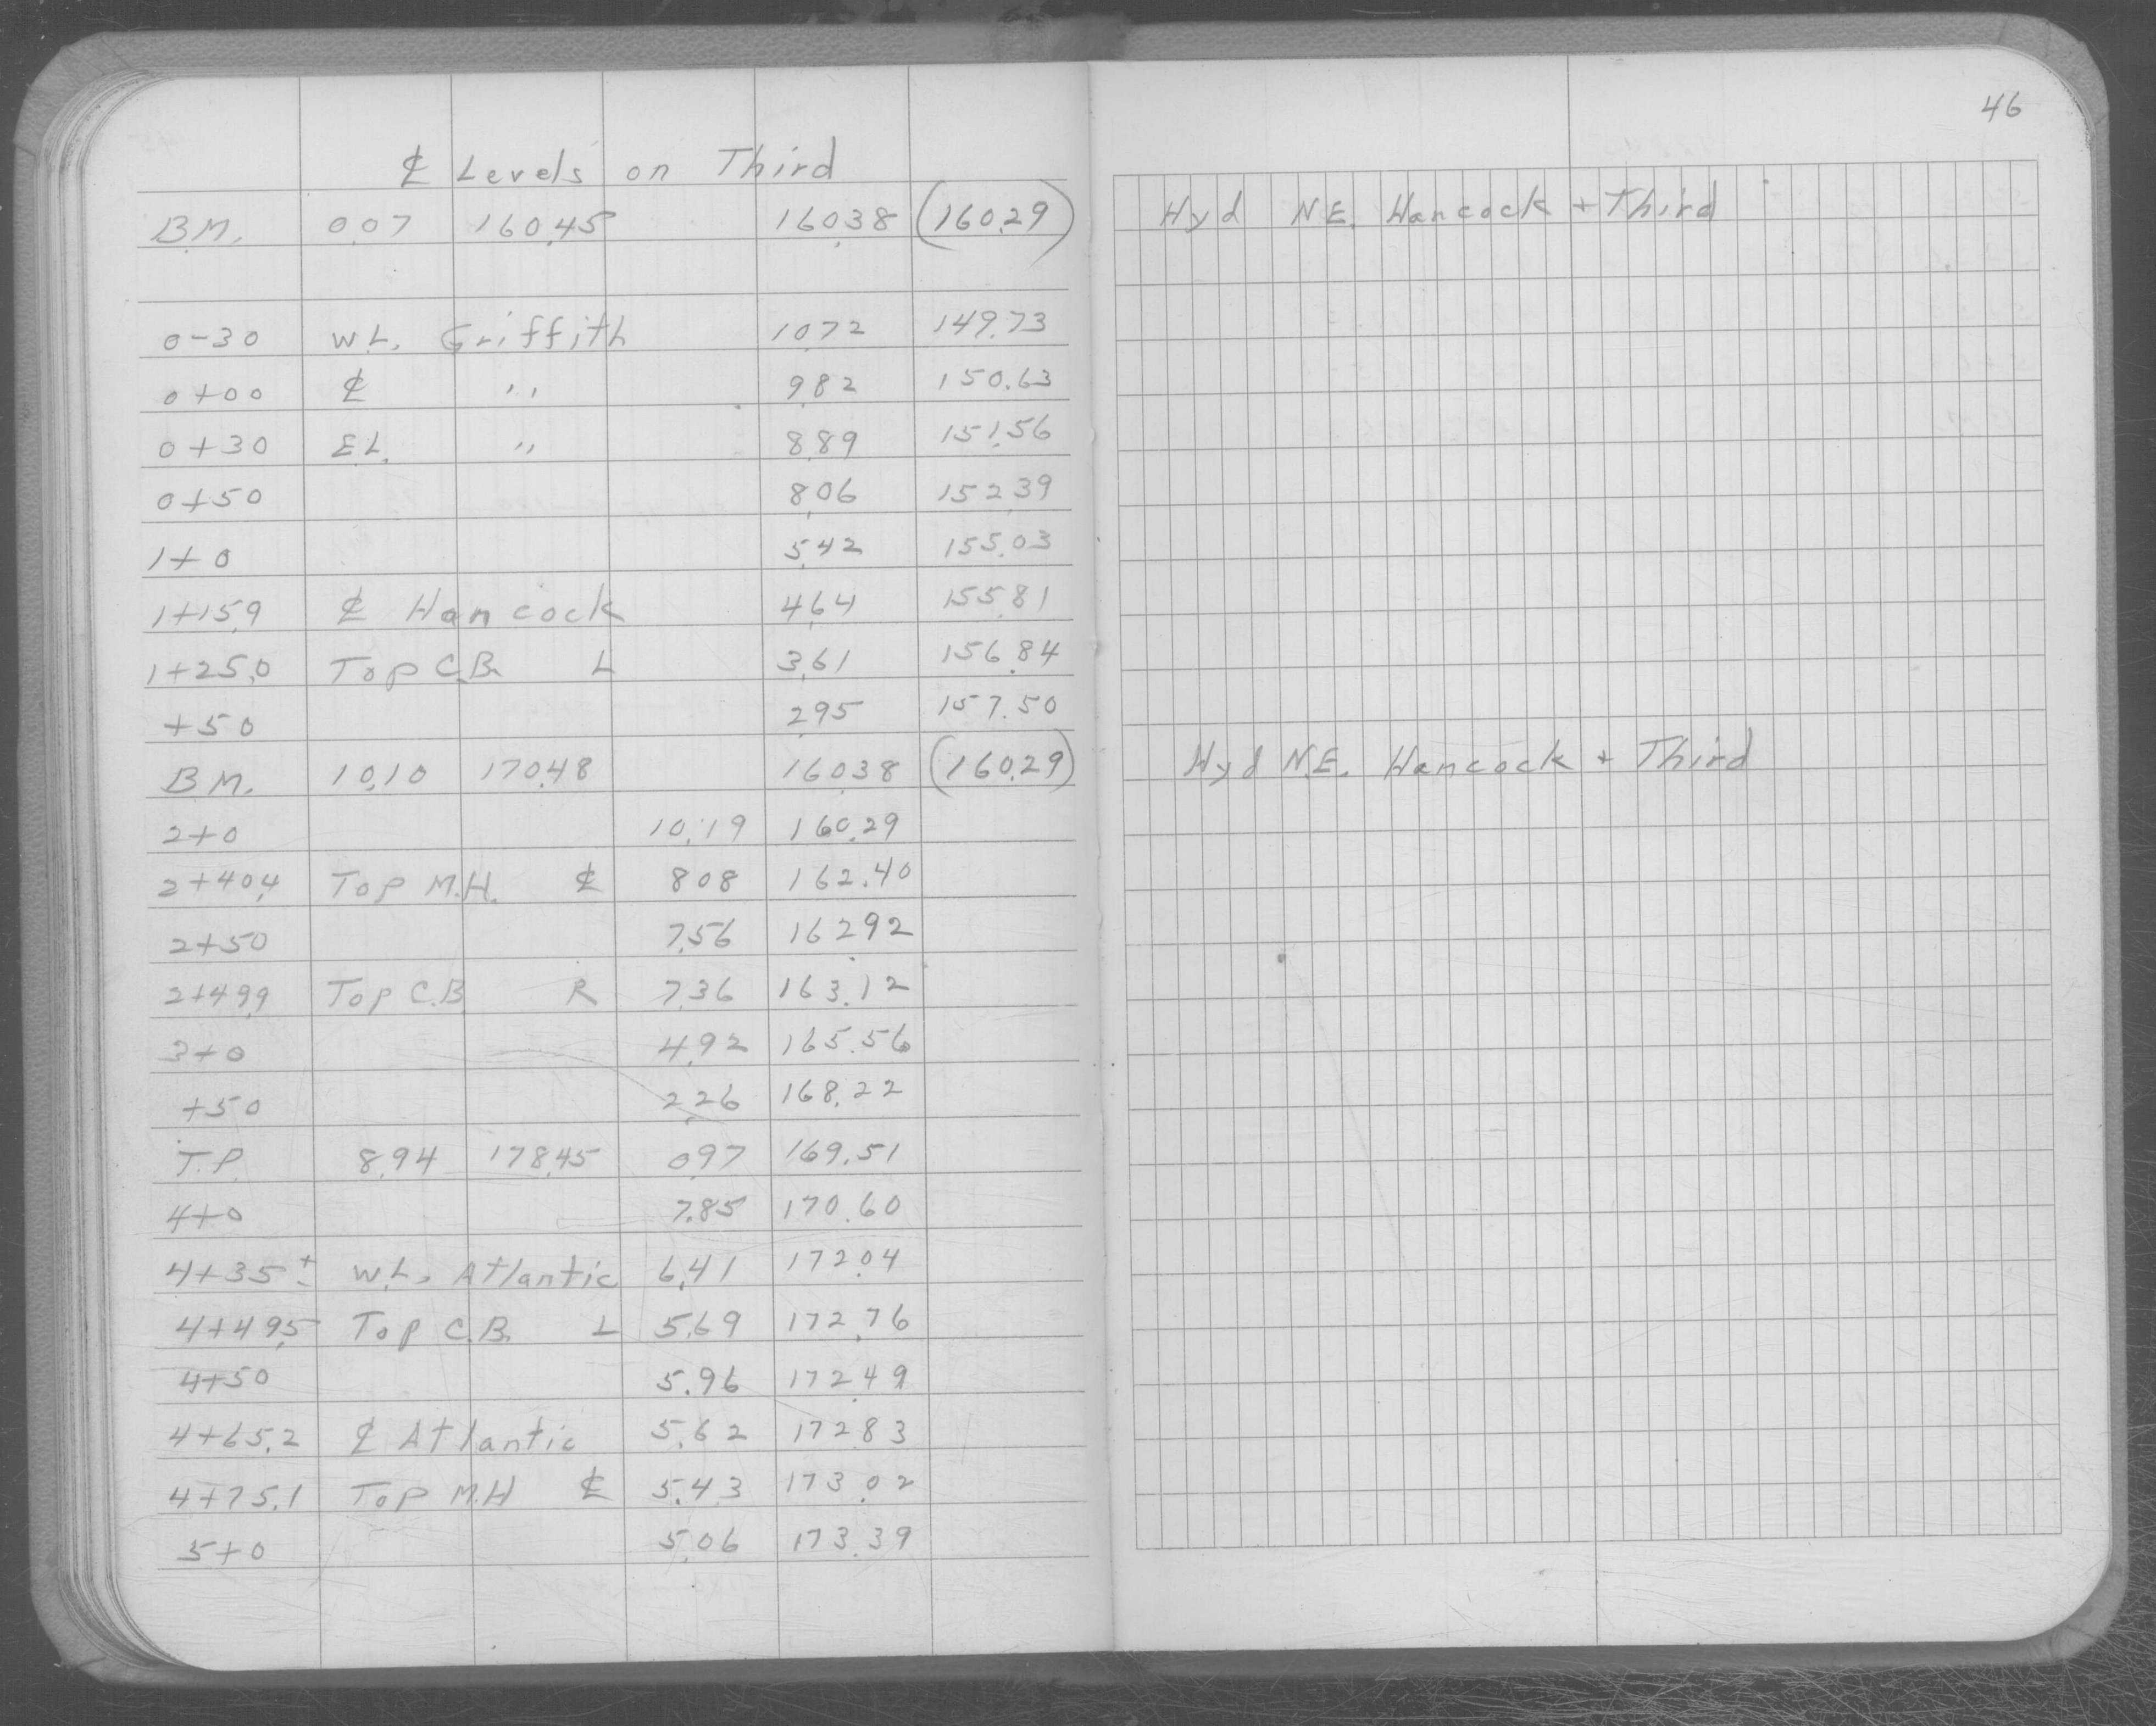 46
℄ Levels on Third
B.M. 0.07 160.45 160.38 (160.29) Hyd N.E. Hancock + Third
0-30 W.L. Griffith 10.72 149.73
0+00 ℄ " 9.82 150.63
0+30 E.L. " 8.89 151.56
0+50 8.06 152.39
1+0 5.42 155.03
1+15.9 ℄ Hancock 4.64 155.81
1+25.0 Top C.B. L 3.61 156.84
+50 2.95 157.50
B.M. 10.10 170.48 160.38 (160.29) Hyd N.E. Hancock + Third
2+0 10.19 160.29
2+40.4 Top M.H. ℄ 8.08 162.40
2+50 7.56 162.92
2+49.9 Top C.B. R 7.36 163.12
3+0 4.92 165.56
+50 2.26 168.22
T.P. 8.94 178.45 0.97 169.51
4+0 7.85 170.60
4+35± W.L. Atlantic 6.41 172.04
4+49.5 Top C.B. L 5.69 172.76
4+50 5.96 172.49
4+65.2 ℄ Atlantic 5.62 172.83
4+75.1 Top M.H ℄ 5.43 173.02
5+0 5.06 173.39